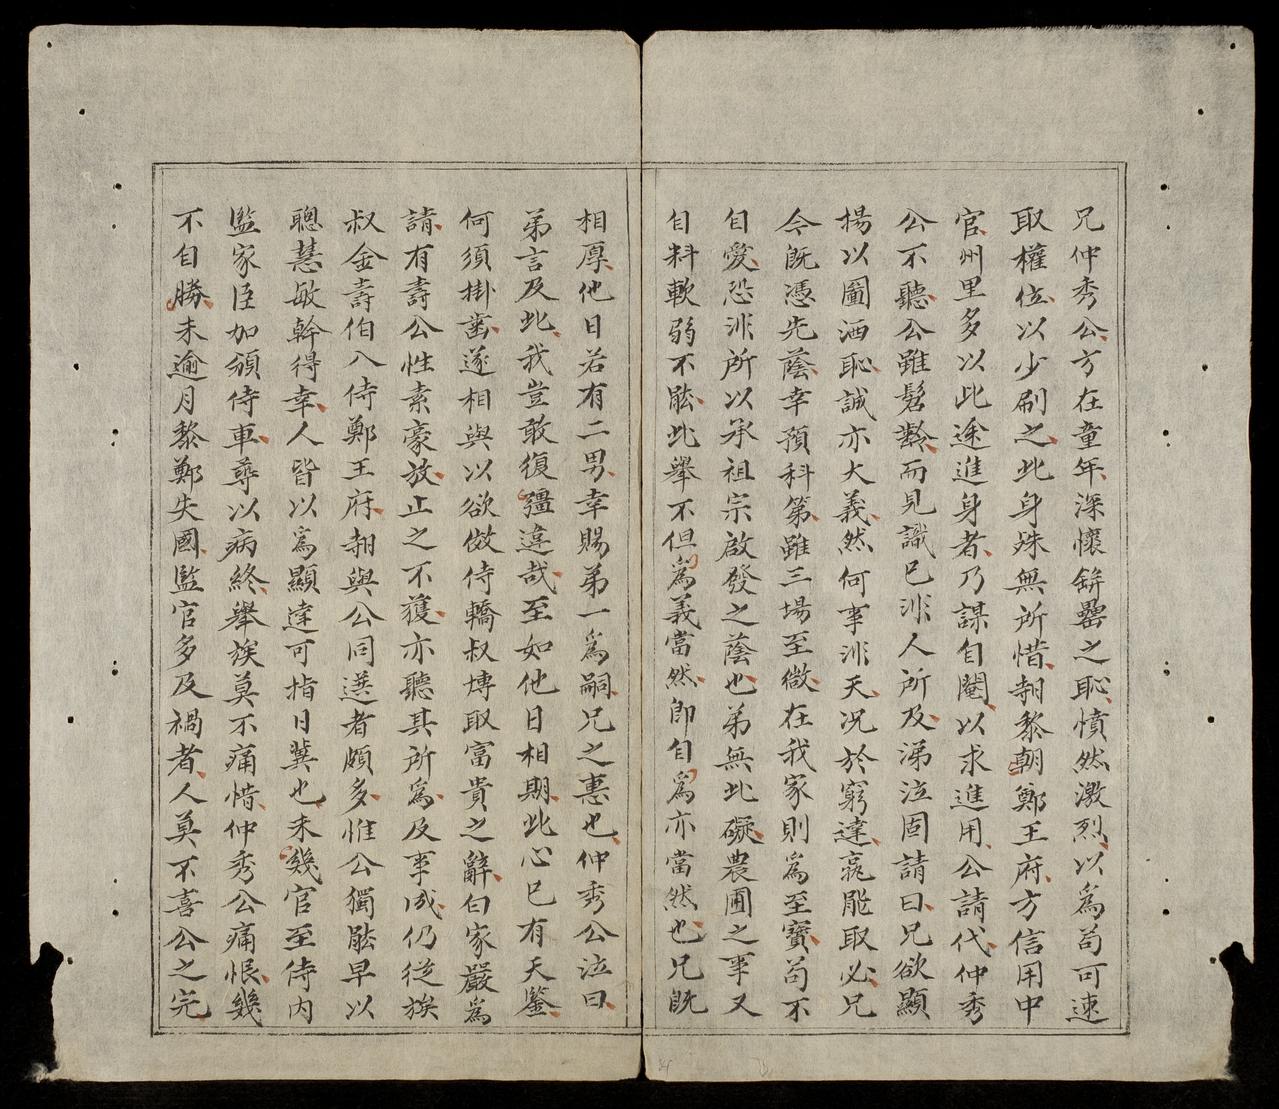 兄仲秀公方在童年深懷缾罍之恥憤然激烈以爲苟可速
取權位以少刷之此身殊無所惜朝黎朝鄭王府方信用中
官州里多以此途進身者乃謀自閹以求進用公請代仲秀
公不聽公雖髫齡而見識已非人所及涕泣固請曰兄欲顯
揚以圖洒恥誠亦大義然何事非天况於窮達孰能取必兄
今既憑先蔭幸預科第雖三場至微在我家則爲至寶苟不
自愛恐非所以承祖宗啟發之蔭也弟無此礙農圃之事又
自料軟弱不能此舉不但爲義當然即自爲亦當然也兄既
相厚他日若有二男幸賜弟一爲嗣兄之惠也仲秀公泣曰
弟言及此我豈敢復彊違哉至如他日相期此心已有天鑒
何須掛齒遂相與以欲倣侍轎叔博取富貴之辭白家嚴爲
請有壽公性素豪放止之不獲亦聽其所爲及事成仍從族
叔金壽伯入侍鄭王府朝與公同選者頗多惟公獨能早以
聰慧敏幹得幸人皆以爲顯達可指日冀也未幾官至侍內
監家臣加頒侍車尋以病終舉族莫不痛惜仲秀公痛恨幾
不自勝未逾月黎鄭失國監官多及禍者人莫不喜公之完